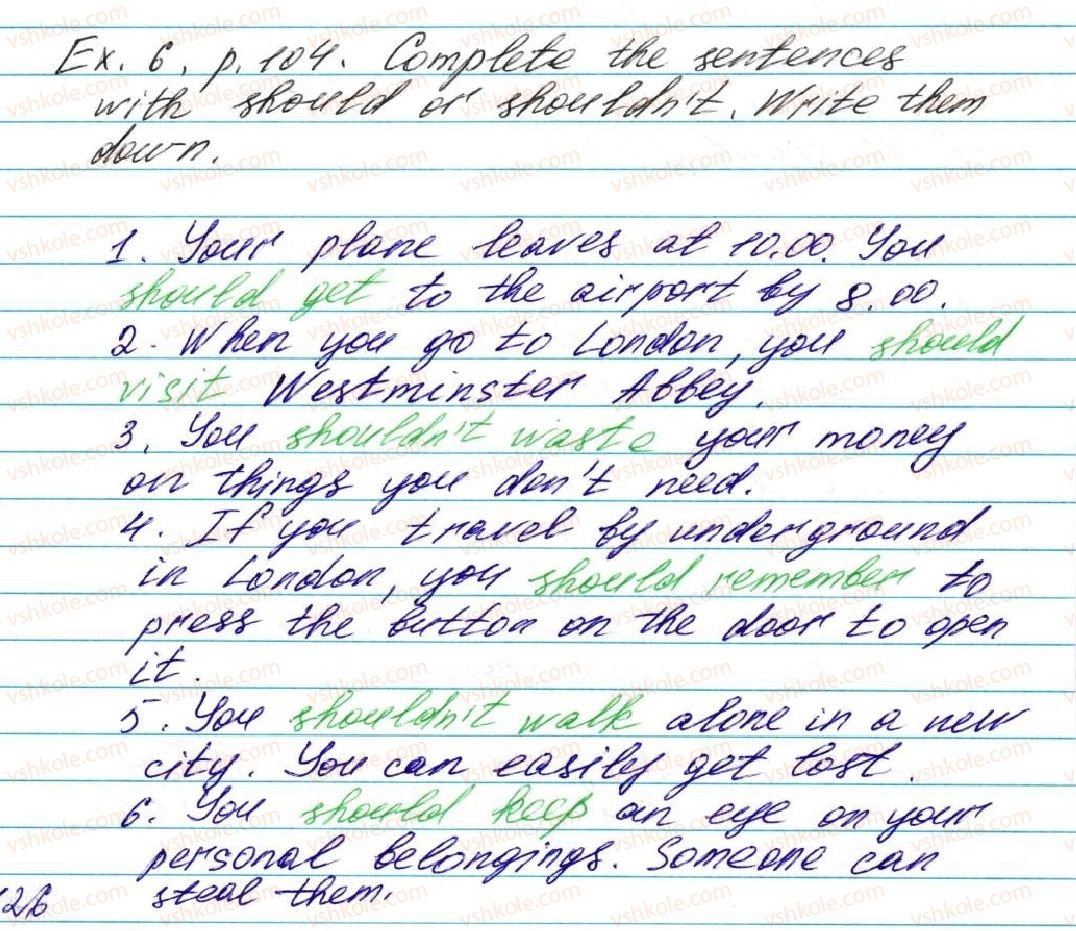 Ex. 6, p. 104. Complete the sentences
with should or shouldn't. Write them
down.
1. Your plane leaves at 10.00. You
should get to the airport by 8.00.
2. When you go to London, you should
visit Westminster Abbey.
3. You shouldn't waste your money
on things you don't need.
4. If you travel by underground
in London, you should remember to
press the button on the door to open
it.
5. You shouldn't walk alone in a new
city. You can easily get lost.
6. You should keep an eye on your
personal belongings. Someone can
steal them.
126